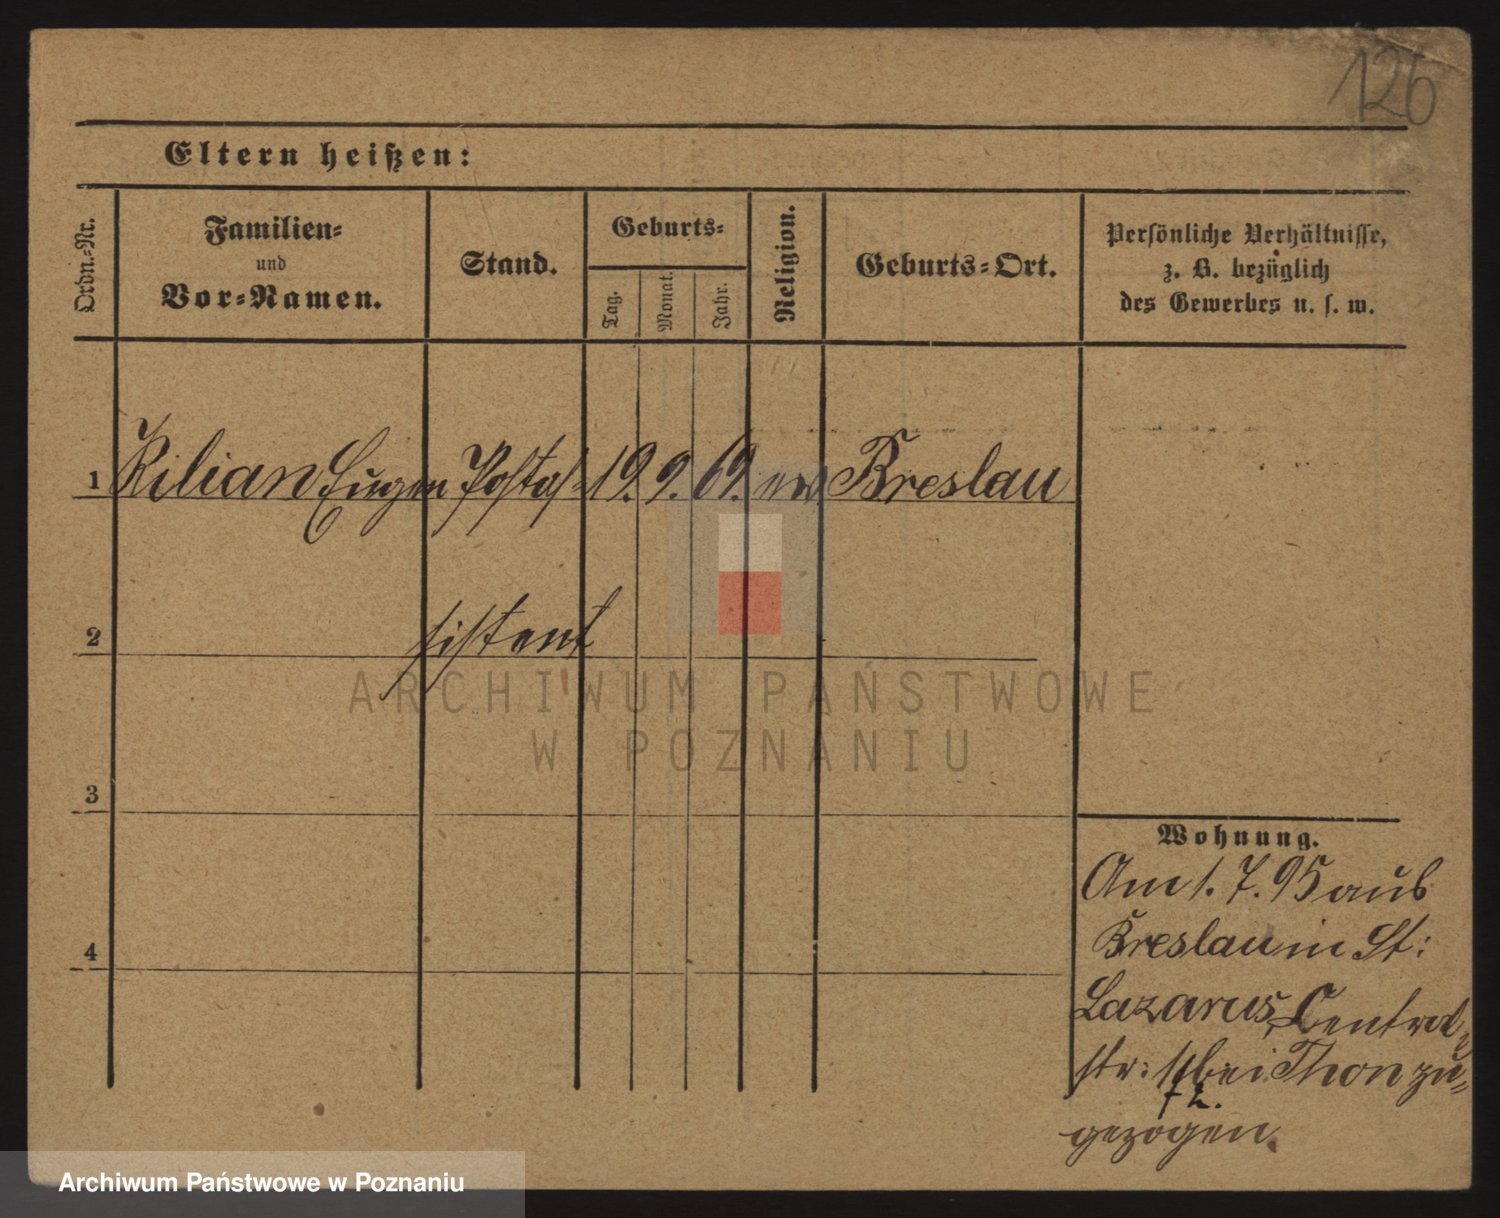 126
Eltern heißen:
Ordn.-Nr.
Familien-
und
Vor-Namen.
Stand.
Geburts-
Tag.
Monat.
Jahr.
Religion.
Geburts-Ort.
Persönliche Verhältnisse,
z. B. bezüglich
des Gewerbes u. s. w.
1 Kilian Eugen Postas- 19. 9. 69. ev. Breslau
2 sistent
ARCHIWUM PAŃSTWOWE
W POZNANIU
3
4
Wohnung.
Am 1. 7. 95 aus
Breslau in St:
Lazarus, Central-
str: bei Thon zu-
gezogen.
Archiwum Państwowe w Poznaniu